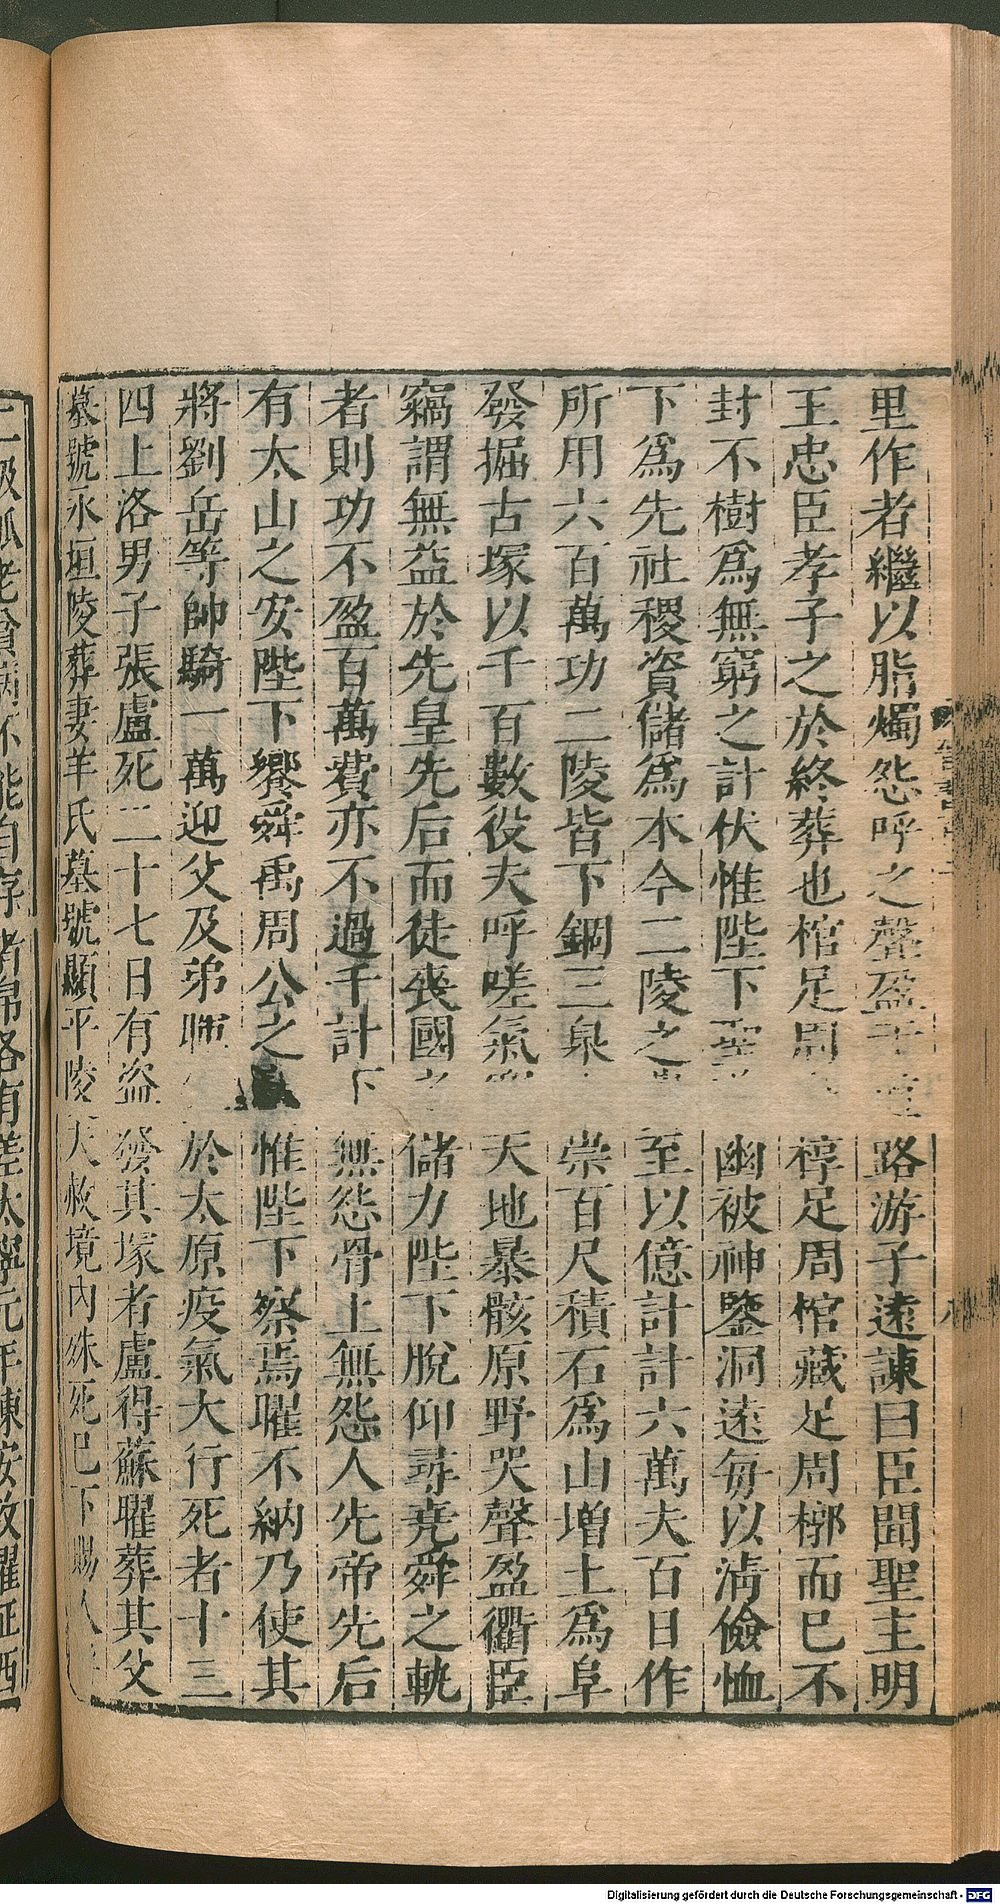 里作者繼以脂燭怨呼之聲盈于路游子遠諫曰臣聞聖主明
王忠臣孝子之於終葬也棺足周椁足周棺藏足周槨而已不
封不樹爲無窮之計伏惟陛下聖幽被神鑒洞遠每以淸儉恤
下爲先社稷資儲爲本今二陵之至以億計計六萬夫百日作
所用六百萬功二陵皆下錮三泉崇百尺積石爲山增土爲阜
發掘古塚以千百數役夫呼嗟氣天地暴骸原野哭聲盈衢臣
竊謂無益於先皇先后而徒喪國儲力陛下脫仰尋堯舜之軌
者則功不盈百萬費亦不過千計下無怨骨上無怨人先帝先后
有太山之安陛下饗舜禹周公之惟陛下察焉曜不納乃使其
將劉岳等帥騎一萬迎父及弟暉於太原疫氣大行死者十三
四上洛男子張盧死二十七日有盜發其塚者盧得蘇曜葬其父
墓號永垣陵葬妻羊氏墓號顯平陵大赦境內殊死已下賜人
孤老貧病不能自存者帛各有差太寧元年陳安攻曜征西
Digitalisierung gefördert durch die Deutsche Forschungsgemeinschaft - DFG